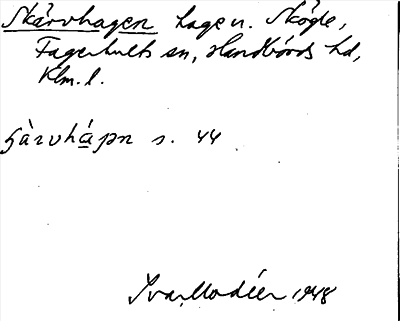 Skärvhagen hage u. Skögle,
Fagerhults sn, Handbörds hd,
Klm. l.
s. 44
Ivar Modéer 1948